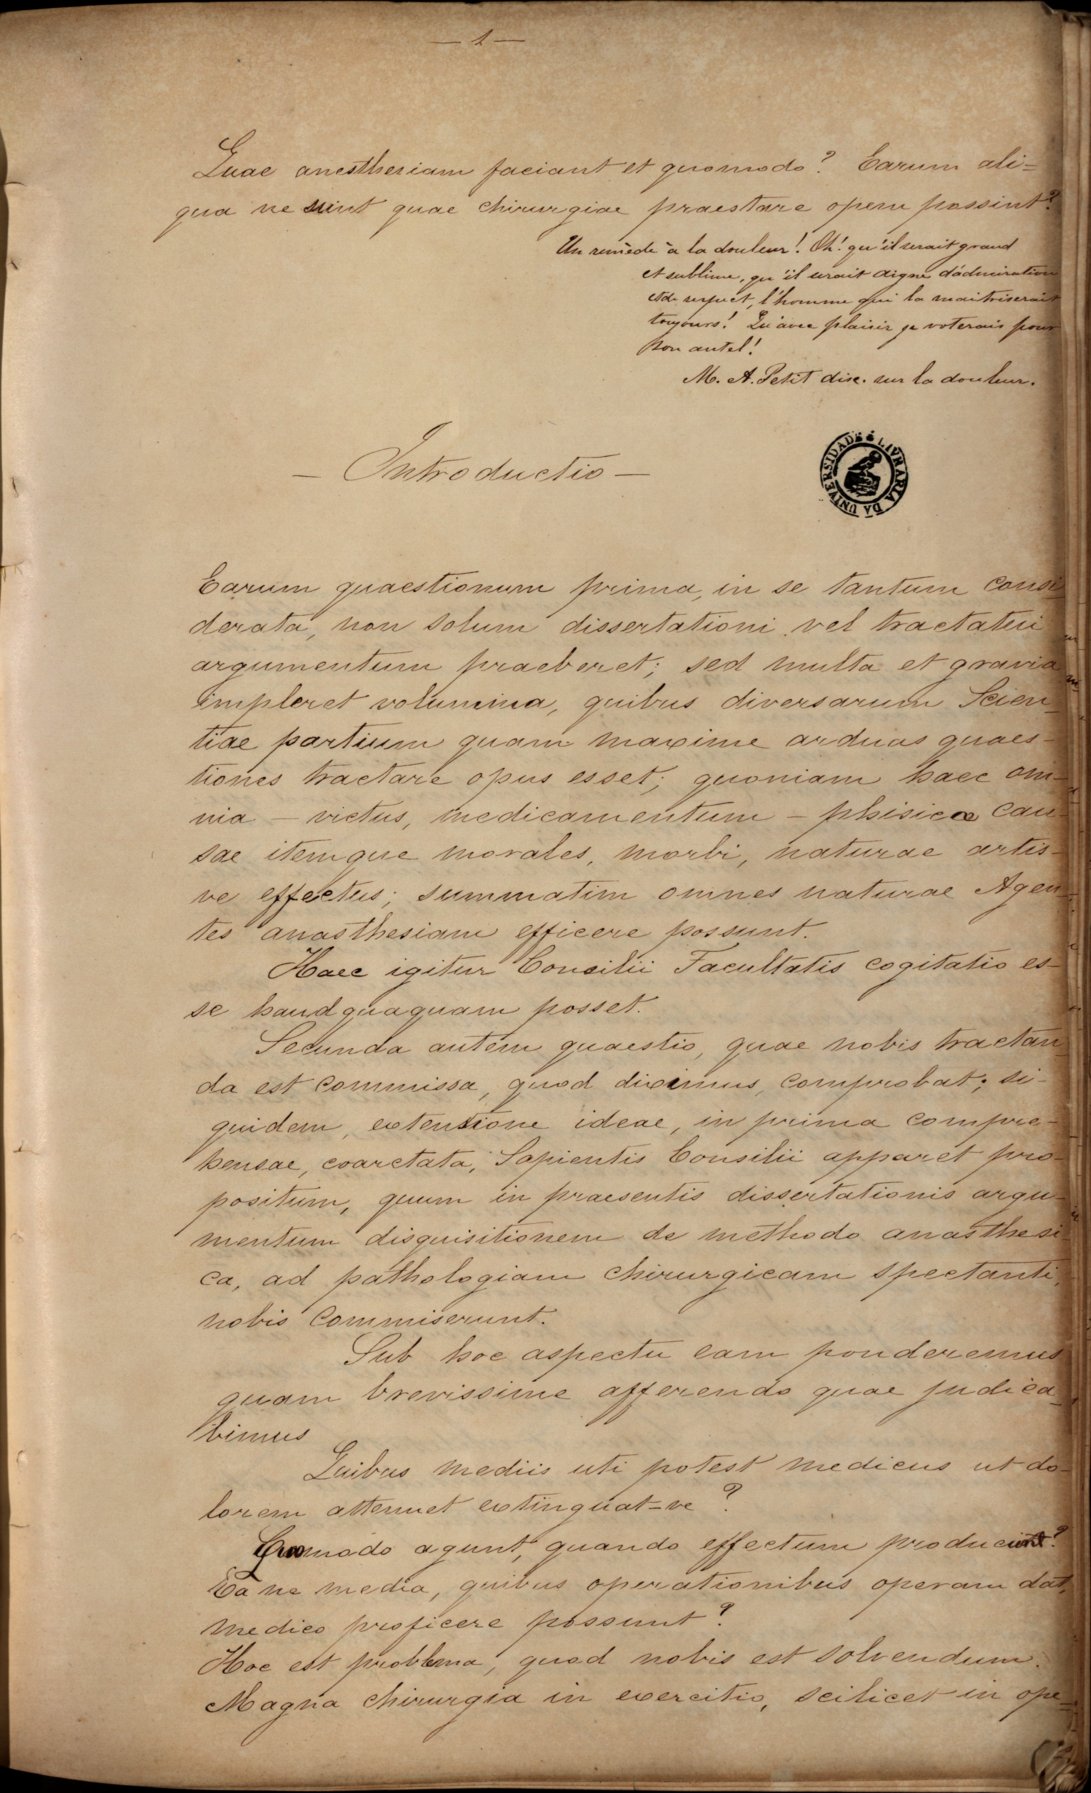 — 1 —
Quae anesthesiam faciant et quomodo? Earum ali=
qua ne sunt quae chirurgiae praestare opem possint?
Un remède à la douleur! Oh! qu'il serait grand
et sublime, qu'il serait digne d'admiration
et de respect, l'homme qui la maitriserait
toujours! Qu'avec plaisir je voterais pour
son autel!
M. A. Petit disc. sur la douleur.
— Introductio —
LIVRARIA DA UNIVERSIDADE
Earum quaestionum prima, in se tantum consi
derata, non solum dissertationi vel tractatui
argumentum praeberet; sed multa et gravia
impleret volumina, quibus diversarum Scien-
tiae partium quam maxime arduas quaes-
tiones tractare opus esset; quoniam haec om-
nia — victus, medicamentum — phisicae cau-
sae itemque morales, morbi, naturae artis-
ve effectus; summatim omnes naturae Agen-
tes anasthesiam efficere possunt.
Haec igitur Concilii Facultatis cogitatio es-
se haudquaquam posset.
Secunda autem quaestio, quae nobis tractan-
da est commissa, quod diximus, comprobat; si-
quidem, extensione ideae, in prima compre-
hensae, coarctata, Sapientis Consilii apparet pro-
positum, quum in praesentis dissertationis argu-
mentum disquisitionem de methodo anasthesi
ca, ad pathologiam chirurgicam spectanti,
nobis commiserunt.
Sub hoc aspectu eam ponderemus
quam brevissime afferendo quae judica-
bimus
Quibus mediis uti potest medicus ut do-
lorem attenuet extinguat=ve?
Quomodo agunt, quando effectum producunt?
Ea ne media, quibus operationibus operam dat,
medico proficere possunt?
Hoc est problema, quod nobis est solvendum.
Magna chirurgia in exercitio, scilicet in ope-